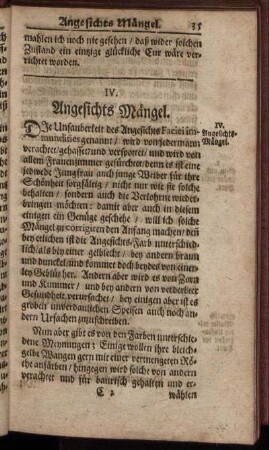 Angesichts Mängel. 35
mahlen ich noch nie gesehen / daß wider solchen
Zustand ein einzige glückliche Cur wäre ver-
richtet worden.
IV.
Angesichts Mängel.
IV.
Angesichts-
Mängel.
DIe Unsauberkeit des Angesichts Faciei im-
mundities genannt / wird von jedermann
verachtet / gehasset und verspottet / und wird von
allem Frauenzimmer geförchtet / denn es ist eine
jedwede Jungfrau auch junge Weiber für ihre
Schönheit sorgfältig / nicht nur wie sie solche
behalten / sondern auch die Verlohrne wieder-
bringen möchten: damit aber auch in diesem
einigen ein Genüge geschehe / will ich solche
Mängel zu corrigiren den Anfang machen / den
bey etlichen ist die Angesichts-Farb unterschied-
lich / als bey einer gelblecht / bey andern braun
und dunckel / und kommet doch bey des von einer-
ley Geblüt her. Andern aber wird es von Zorn
und Kummer / und bey andern von verderbter
Gesundheit verursachet / bey einigen aber ist es
grober unverdaulichen Speisen auch noch an-
dern Ursachen zuzuschreiben.
Nun aber gibt es von den Farben unterschie-
dene Meynungen; Einige wollen ihre bleich-
gelbe Wangen gern mit einer vermengeten Rö-
the anfärben / hingegen wird solche von andern
verachtet und für bäurisch gehalten und er-
C 2 wählen